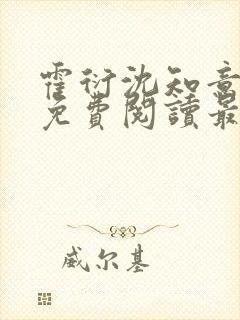 霍衍沈知意
免費閱讀最
威尔基